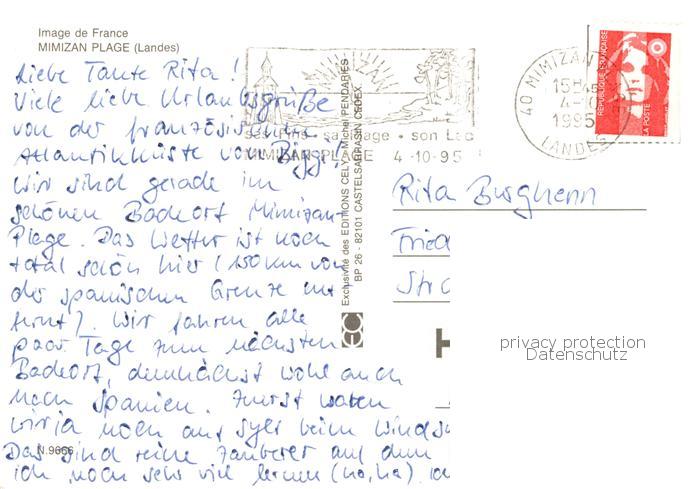 Image de France
MIMIZAN PLAGE (Landes)
Liebe Tante Rita!
Viele liebe Urlaubsgrüße
von der französischen
Atlantikküste von Biggi!
Wir sind gerade im
schönen Badeort Mimizan-
Plage. Das Wetter ist noch
total schön hier (150 km von
der spanischen Grenze ent
fernt). Wir fahren alle
paar Tage zum nächsten
Badeort, demnächst wohl auch
nach Spanien. Zuerst waren
wir ja noch auf Sylt beim Winds
Das sind reine Zauberer auf dem
ich noch sehr viel lernen (ha, ha). Ich
N.9666
MIMIZAN
ses Pins - sa plage - son Lac
MIMIZAN PLAGE 4-10-95
40 MIMIZAN
15H45
4-10
1995
LANDES
REPUBLIQUE FRANÇAISE
LA POSTE
Exclusivité des EDITIONS CELY - Michel PENDARIES
BP 26 - 82101 CASTELSARRASIN CEDEX
Rita Burghenn
Fried
Str
privacy protection
Datenschutz